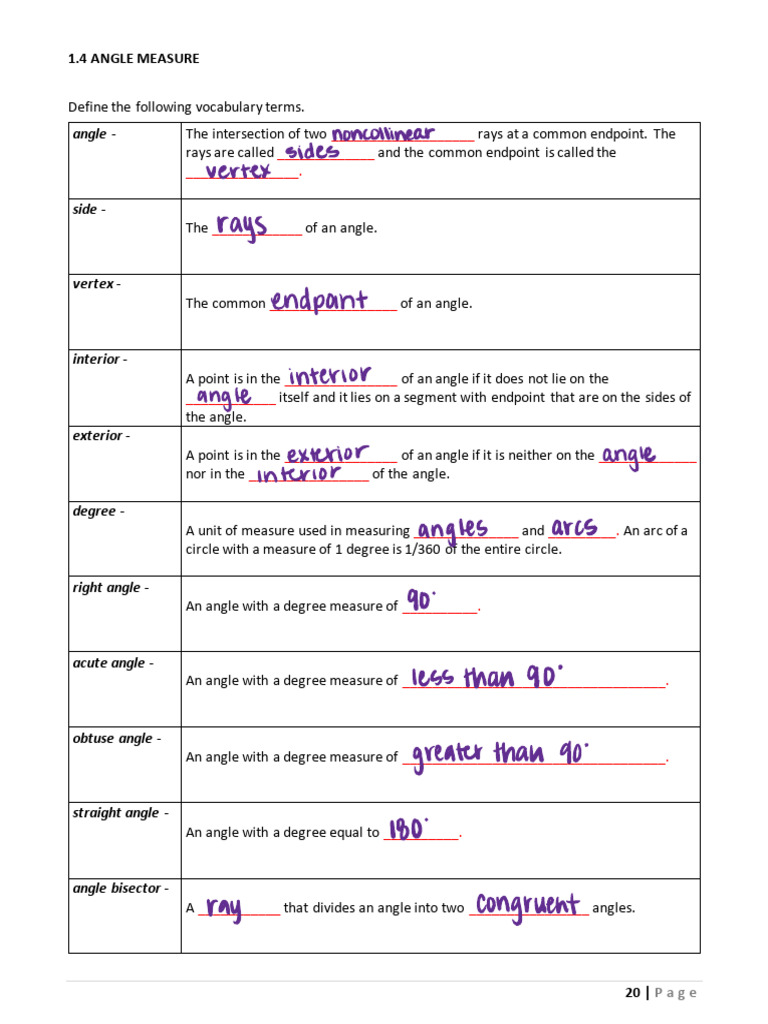 1.4 ANGLE MEASURE
Define the following vocabulary terms.
angle - The intersection of two noncollinear rays at a common endpoint. The
rays are called sides and the common endpoint is called the
vertex.
side -
The rays of an angle.
vertex -
The common endpoint of an angle.
interior -
A point is in the interior of an angle if it does not lie on the
angle itself and it lies on a segment with endpoint that are on the sides of
the angle.
exterior -
A point is in the exterior of an angle if it is neither on the angle
nor in the interior of the angle.
degree -
A unit of measure used in measuring angles and arcs. An arc of a
circle with a measure of 1 degree is 1/360 of the entire circle.
right angle -
An angle with a degree measure of 90°.
acute angle -
An angle with a degree measure of less than 90°.
obtuse angle -
An angle with a degree measure of greater than 90°.
straight angle -
An angle with a degree equal to 180°.
angle bisector -
A ray that divides an angle into two congruent angles.
20 | Page